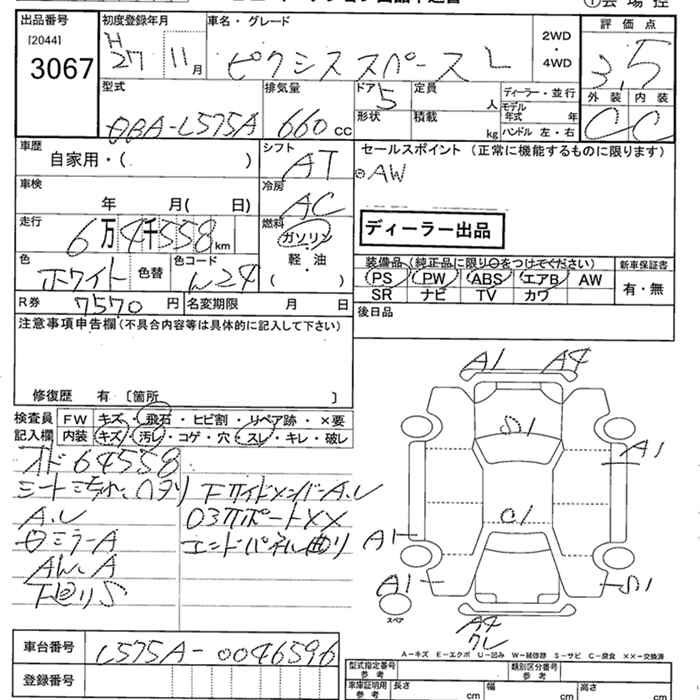 出品番号
[2044]
3067
初度登録年月
H
27 11月
車名・グレード
ピクシススペース L
2WD
・
4WD
評価点
3.5
外装 内装
C C
型式
DBA-L575A
排気量
660 cc
ドア 5
形状
定員 人
積載 kg
ディーラー・並行
モデル年式 年
ハンドル 左・右
車歴
自家用・( )
シフト
AT
セールスポイント (正常に機能するものに限ります)
AW
車検
年 月( 日)
冷房
AC
走行
6万4千558km
燃料
ガソリン
軽・油
( )
ディーラー出品
色
ホワイト
色替
色コード
装備品 (純正品に限り○をつけてください)
PS PW ABS エアB AW
SR ナビ TV カワ
新車保証書
有・無
R券 7570 円
名変期限 月 日
後日品
注意事項申告欄(不具合内容等は具体的に記入して下さい)
修復歴 有 [箇所 ]
検査員
記入欄
FW キズ・飛石・ヒビ割・リペア跡・×要
内装 キズ・汚レ・コゲ・穴・スレ・キレ・破レ
オド 64558
A.U
ミラーA
A
下回りS
エンドパネル曲り
A1 A4
S1
A1
C1
A1
A1
S1
スペア
A4
A-キズ E-エクボ U-凹み W-補修跡 S-サビ C-腐食 ××-交換済
車台番号
L575A-0046596
登録番号
型式指定番号
参考
類別区分番号
参考
車庫証明用
参考
長さ cm
幅 cm
高さ cm